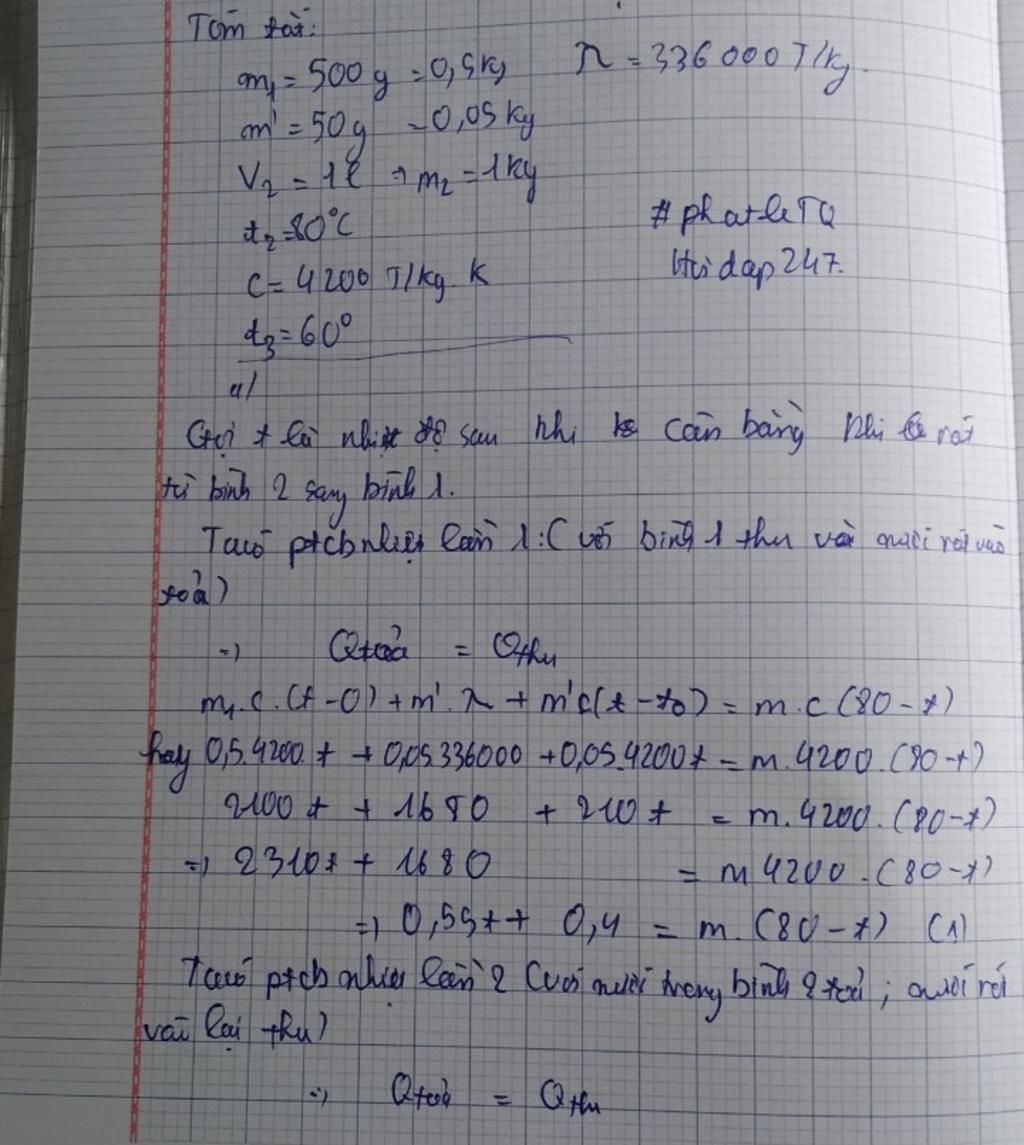 Tóm tắt:
m₁ = 500g = 0,5kg λ = 336000 J/kg.
m' = 50g = 0,05 kg
V₂ = 1l → m₂ = 1kg
t₂ = 80°C # phatleTQ
c = 4200 J/kg.k Hoidap247.
t₃ = 60°
a/
Gọi t là nhiệt độ sau khi cân bằng khi rót
từ bình 2 sang bình 1.
Ta có ptcb nhiệt lần 1: (với bình 1 thu và nước rót vào
toả)
=> Qtoả = Qthu
m₁.c.(t-0) + m'.λ + m'c(t-t₀) = m.c(80-t)
hay 0,5.4200.t + 0,05.336000 + 0,05.4200t = m.4200.(80-t)
2100t + 1680 + 210t = m.4200.(80-t)
=> 2310t + 1680 = m4200.(80-t)
=> 0,55t + 0,4 = m.(80-t) (1)
Ta có ptcb nhiệt lần 2 (với nước trong bình 2 toả; nước rót
vào lại thu)
=> Qtoả = Qthu